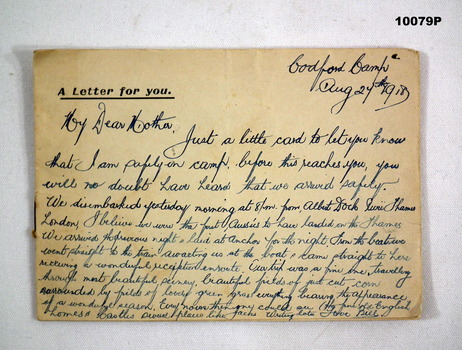 10079P
Codford Camp
Aug 27th 1918
A Letter for you.
My Dear Mother,
Just a little card to let you know
that I am safely in camp. before this reaches you, you
will no doubt have heard that we arrived safely.
We disembarked yesterday morning at 8 from Albert Dock River Thames
London, I believe we were the first Aussies to have landed on the Thames
We arrived the previous night & laid at anchor for the night from the boat we
went straight to the train awaiting us at the boat & came straight to here
receiving a wonderful reception enroute. Our trip was a fine one, travelling
through most beautiful scenery, beautiful fields of cut corn
surrounded by fields of lovely green grass everything bearing the appearance
of a wonderful season. Every now & then one could see English
homes & Castles places like Love Bill.